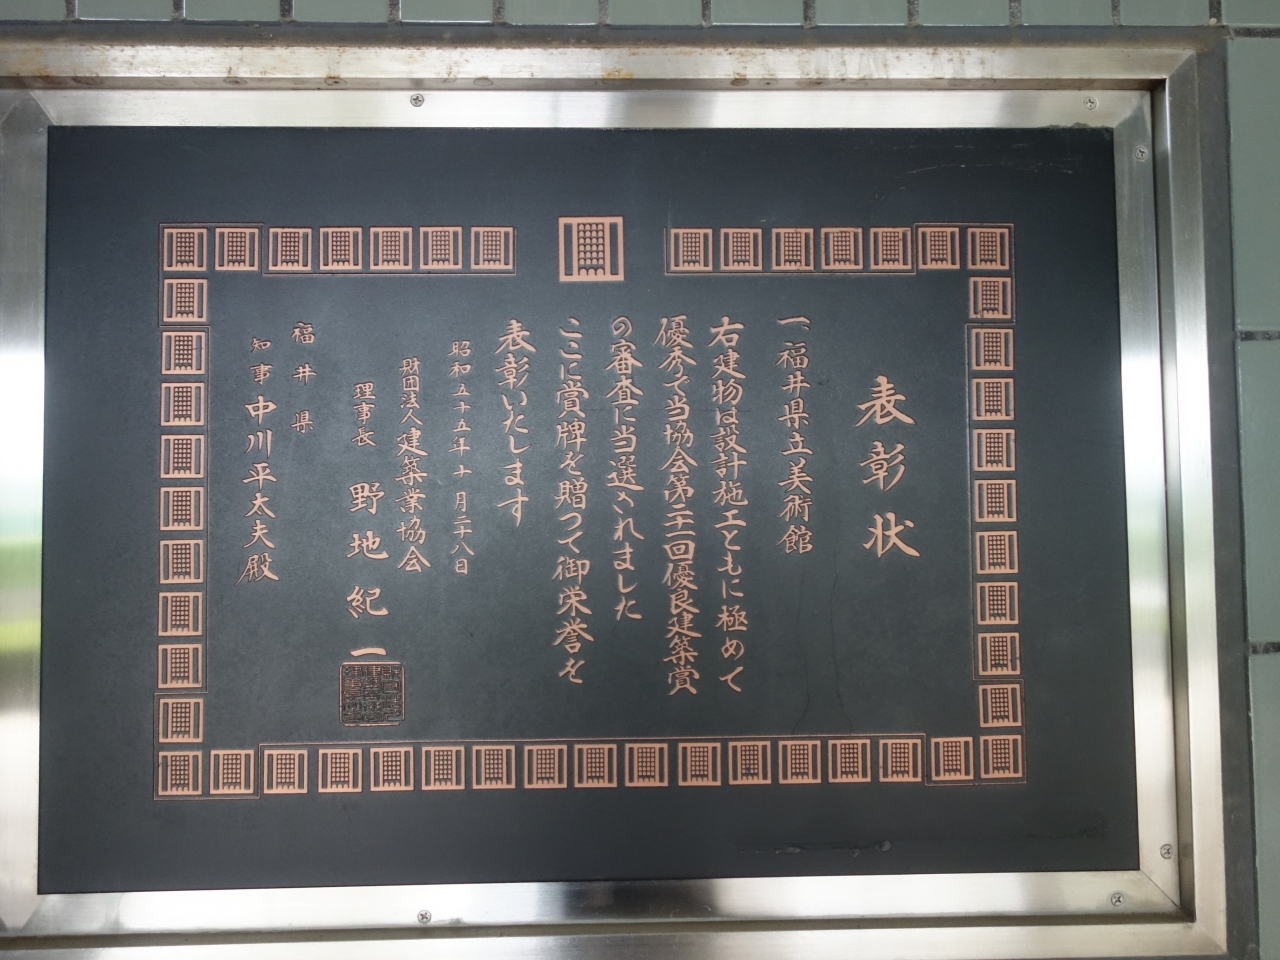 表彰状
一、福井県立美術館
右建物は設計施工ともに極めて
優秀で当協会第二十一回優良建築賞
の審査に当選されました
ここに賞牌を贈つて御栄誉を
表彰いたします
昭和五十五年十月二十八日
財団法人建築業協会
理事長 野地紀一
福井県
知事 中川平太夫殿